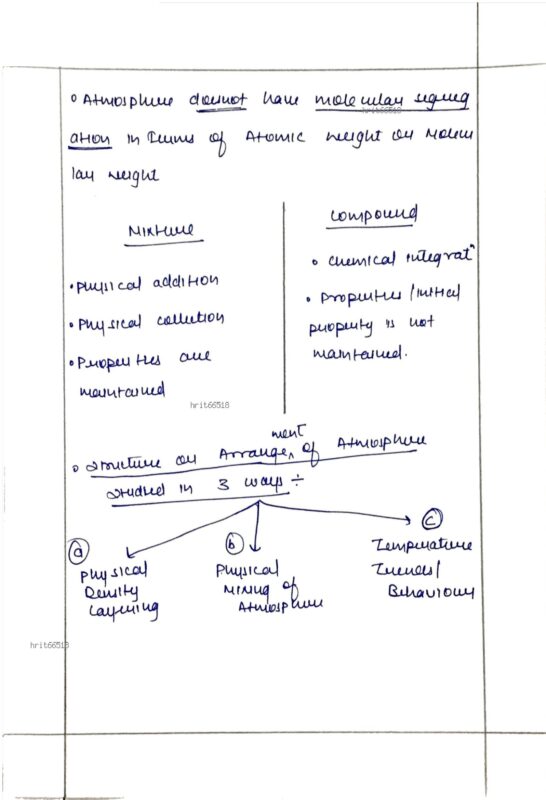 • Atmosphere doesnot have molecular segreg
ation in Terms of Atomic weight or Molecu
lar weight
Mixture
• Physical addition
• Physical collection
• Properties are
maintained
Compound
• chemical integratⁿ
• Properties/initial
property is not
maintained.
• Structure or Arrangement of Atmosphere
studied in 3 ways ÷
(a)
Physical
Density
Layering
(b)
Physical
Mixing of
Atmosphere
(c)
Temperature
Trends/
Behaviour
hrit66518
hrit66518
hrit66518